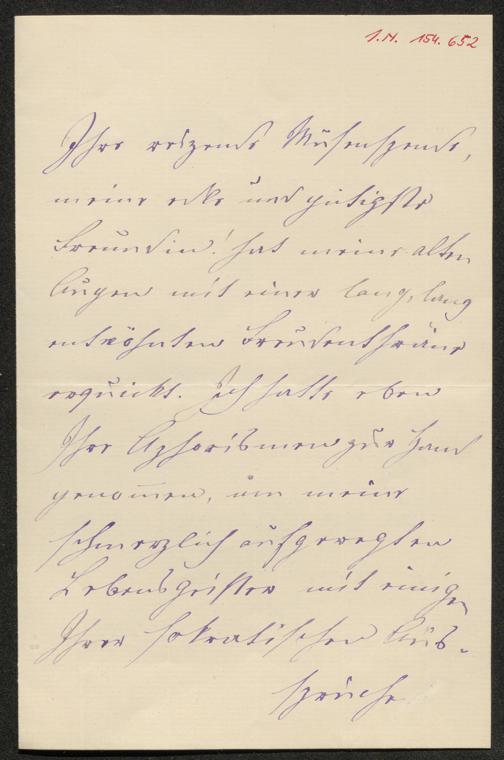 I.N. 154.652
Ihre reizende Musenspende,
meine edle und gütigste
Freundin! hat meine alten
Augen mit einer lang, lang
entwöhnten Freudenthräne
erquickt. Ich hatte eben
Ihre Aphorismen zur Hand
genommen, um meine
schmerzlich aufgeregten
Lebensgeister mit einigen
Ihrer sokratischen Aus-
sprüche